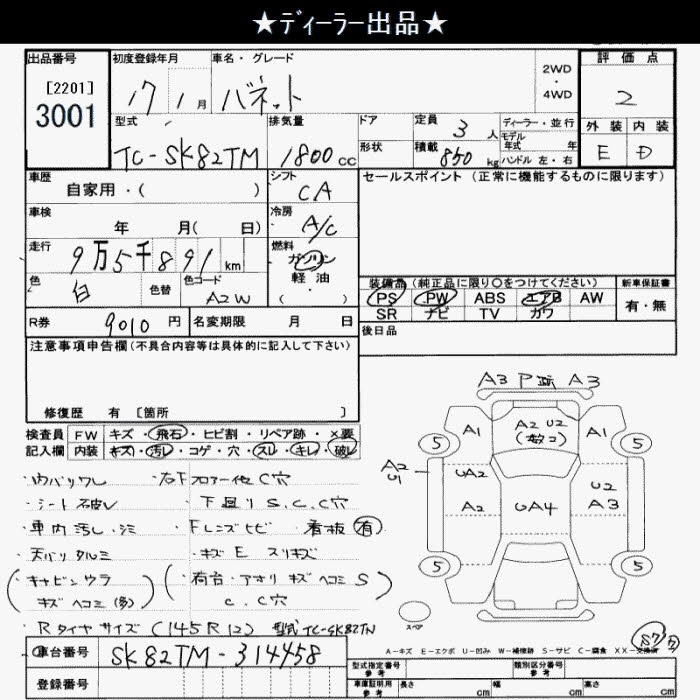 ★ディーラー出品★
出品番号
[2201]
3001
初度登録年月
17 1月
車名・グレード
バネット
2WD
・
4WD
評価点
2
外装 内装
E D
型式
TC-SK82TM
排気量
1800cc
ドア
形状
定員 3人
積載 850kg
ディーラー・並行
モデル
年式 年
ハンドル 左・右
車歴
自家用・( )
シフト
CA
車検
年 月( 日)
冷房
A/C
走行
9万5千891km
燃料
ガソリン
軽油
( ・ )
色
白
色替
色コード
A2W
R券 9010円
名変期限 月 日
セールスポイント(正常に機能するものに限ります)
装備品(純正品に限り〇をつけてください)
PS PW ABS エアB AW
SR ナビ TV カワ
新車保証書
有・無
後日品
注意事項申告欄(不具合内容等は具体的に記入して下さい)
修復歴 有 [箇所 ]
検査員
記入欄
FW キズ・飛石・ヒビ割・リペア跡・×要
内装 キズ・汚レ・コゲ・穴・スレ・キレ・破レ
・シート破レ
・車内汚レ・シミ
・天バリタルミ
(キャビンウラ
キズヘコミ(多))
・右下フロアー他C穴
・下回りS.C.C穴
・Fレンズヒビ 看板(有)
・キズE スリキズ
(荷台・アオリキズヘコミS
C.C穴)
Rタイヤサイズ(145R12) 型式TC-SK82TN
車台番号
SK82TM-314458
登録番号
A3 A3
A2 U2
A1 A1
5 5
A2
U1
UA2
A2
UA4
U2
A3
5 5
スペア
A-キズ E-エクボ U-凹み W-補修跡 S-サビ C-腐食 XX-交換済
型式指定番号
参考
類別区分番号
参考
車庫証明用
参考
長さ cm
幅 cm
高さ cm